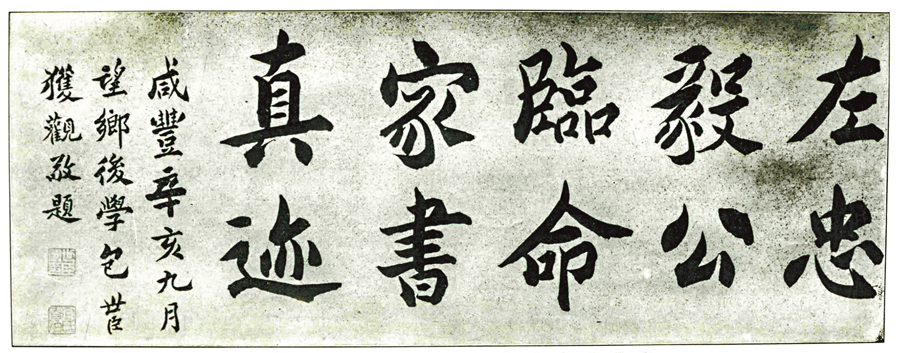 左忠
毅公
臨命
家書
真迹
咸豐辛亥九月
望鄉後學包世臣
獲觀敬題